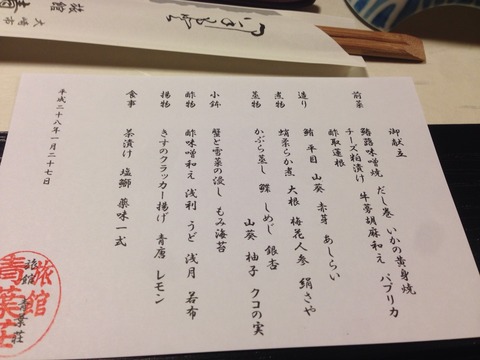 御献立
前菜 鮭蕗味噌焼 だし巻 いかの黄身焼
チーズ粕漬け 牛蒡胡麻和え パプリカ
酢取蓮根
造り 鮪 平目 山葵 赤芽 あしらい
煮物 蛸柔らか煮 大根 梅花人参 絹さや
蒸物 かぶら蒸し 鰈 しめじ 銀杏
山葵 柚子 クコの実
小鉢 蟹と雪菜の浸し もみ海苔
酢物 酢味噌和え 浅利 うど 浅月 若布
揚物 きすのクラッカー揚げ 青唐 レモン
食事 茶漬け 塩鰤 薬味一式
平成二十八年一月二十七日
旅館 青葉荘
旅館
青葉荘
大崎市
旅館